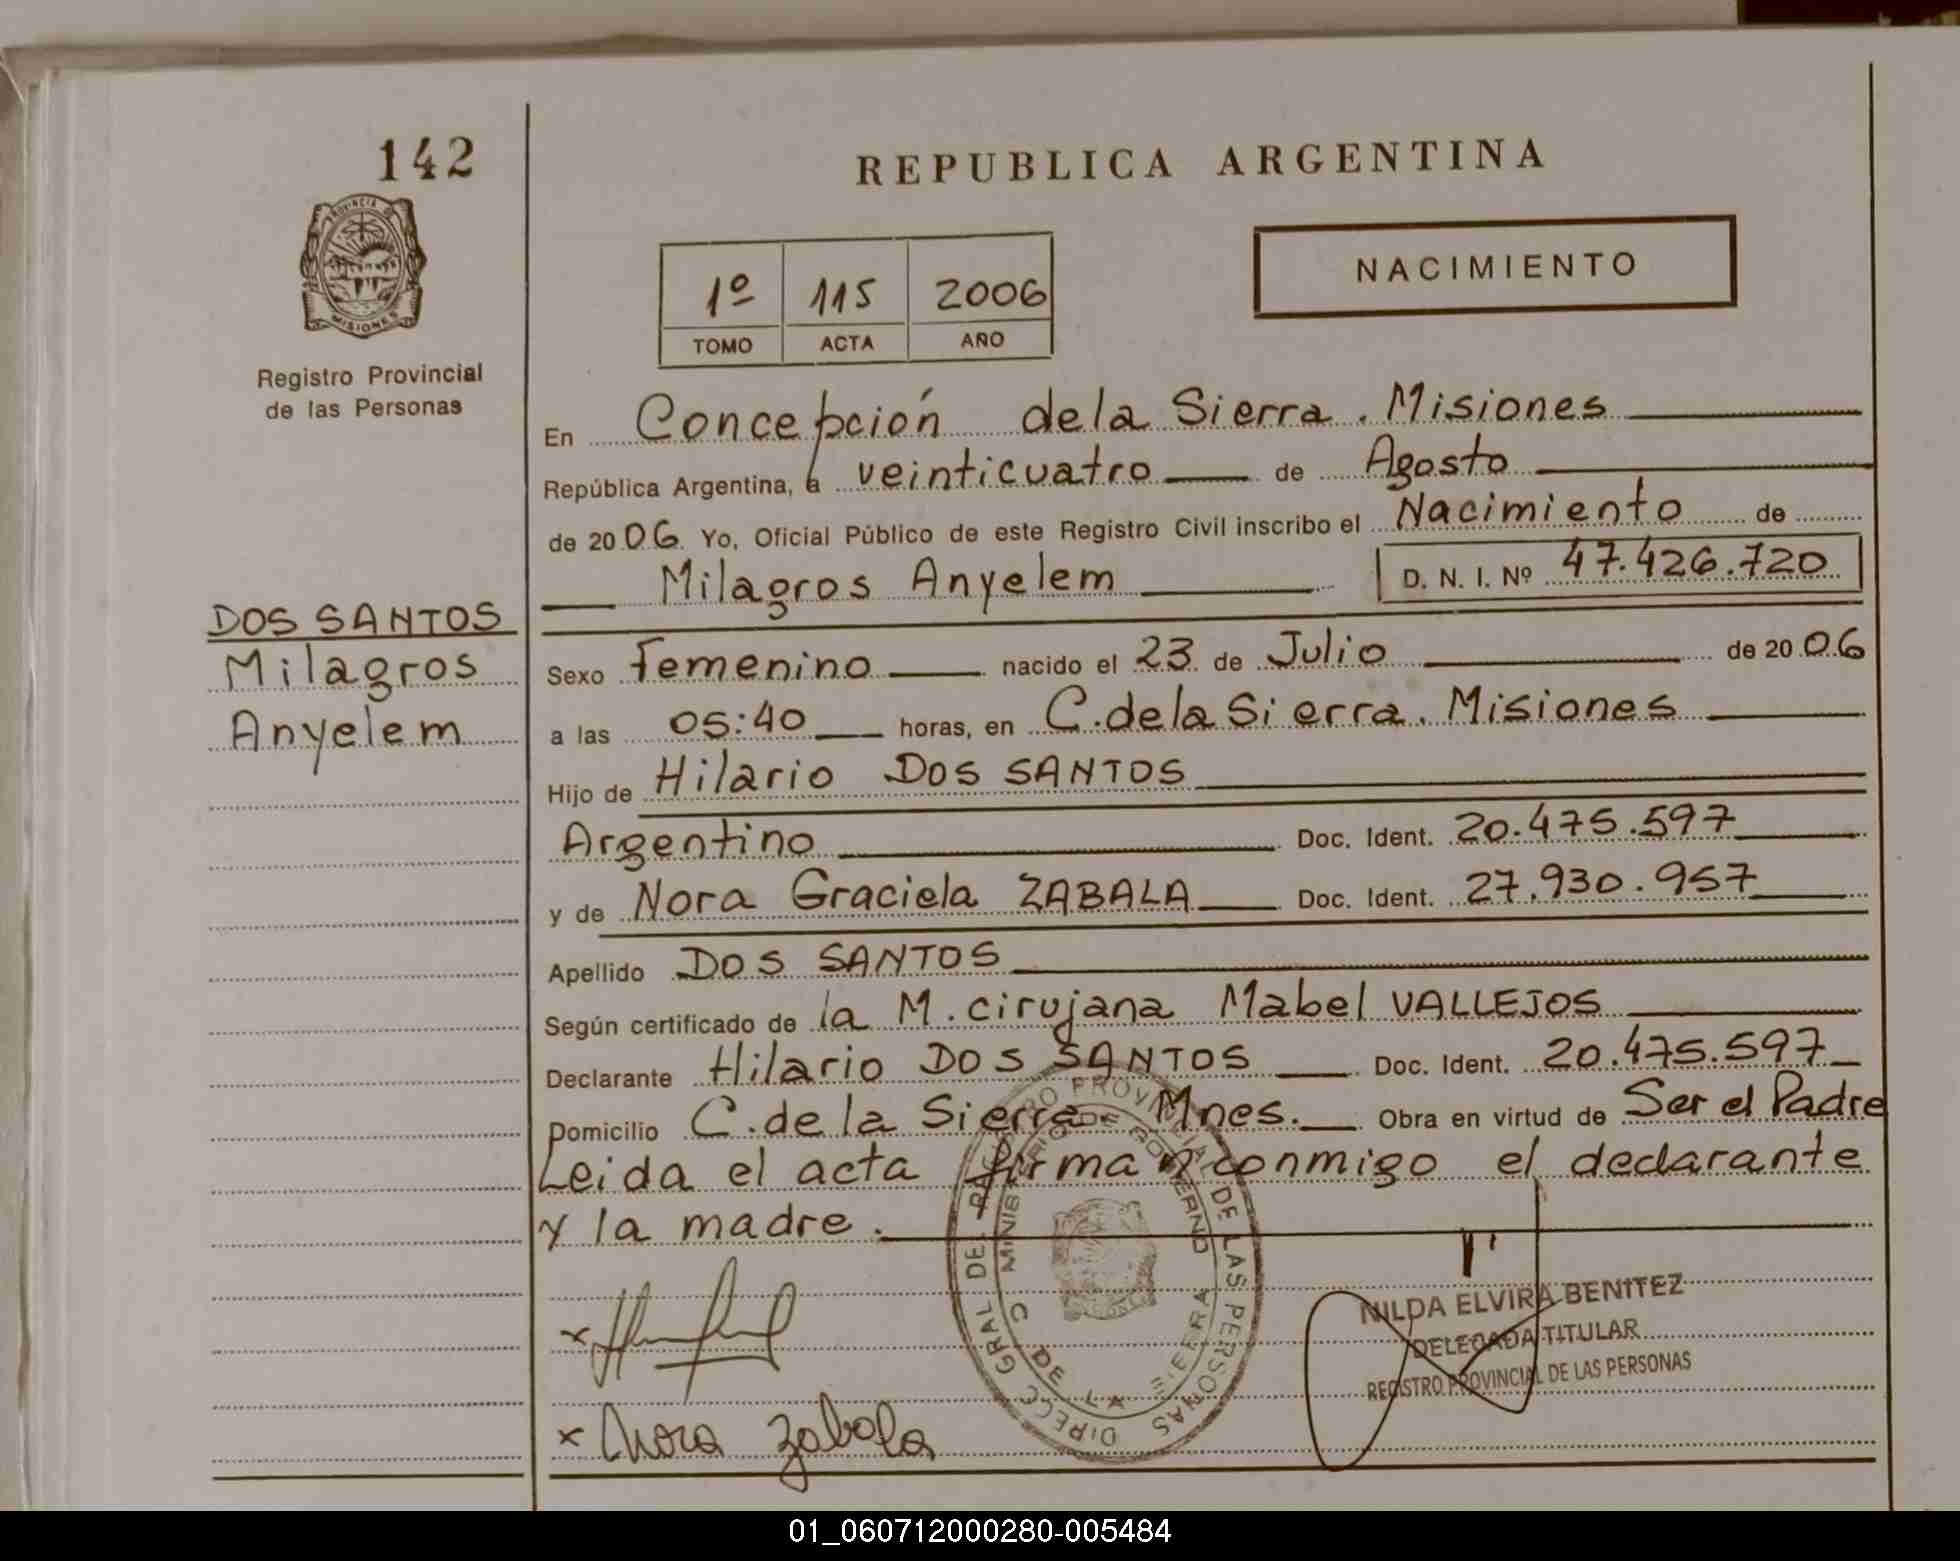 142
PROVINCIA DE
MISIONES
Registro Provincial
de las Personas
DOS SANTOS
Milagros
Anyelem
REPUBLICA ARGENTINA
1º 115 2006
TOMO ACTA AÑO
NACIMIENTO
En Concepción de la Sierra. Misiones
República Argentina, a veinticuatro de Agosto
de 2006 Yo, Oficial Público de este Registro Civil inscribo el Nacimiento de
Milagros Anyelem D. N. I. Nº 47.426.720
Sexo Femenino nacido el 23 de Julio de 2006
a las 05:40 horas, en C. de la Sierra. Misiones
Hijo de Hilario DOS SANTOS
Argentino Doc. Ident. 20.475.597
y de Nora Graciela ZABALA Doc. Ident. 27.930.957
Apellido DOS SANTOS
Según certificado de la M. cirujana Mabel VALLEJOS
Declarante Hilario DOS SANTOS Doc. Ident. 20.475.597
Domicilio C. de la Sierra Mnes. Obra en virtud de Ser el Padre
Leida el acta firman conmigo el declarante
y la madre.
DIRECC GRAL DE REGISTRO PROVINCIAL DE LAS PERSONAS
MINISTERIO DE GOBIERNO
C DE LA SIERRA
NILDA ELVIRA BENITEZ
DELEGADA TITULAR
REGISTRO PROVINCIAL DE LAS PERSONAS
x
x Nora Zabala
01_060712000280-005484